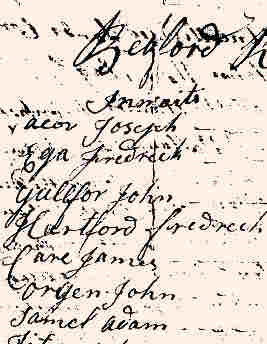 Bedford
Inmaits
Jacor Joseph
Ega fredrech
Gullfor John
Hartford fredrech
Care James
Corgen John
Samel adam